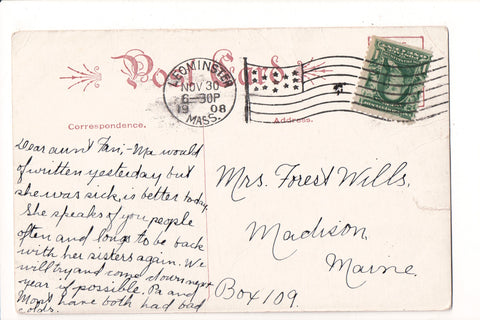 Post Card
LEOMINSTER
NOV 30
6-30P
1908
MASS.
Correspondence.
Address.
Dear aunt Fan; - Ma would
of written yesterday but
she was sick, is better today.
She speaks of you people
often and longs to be back
with her sisters again. We
will try and come down next
year if possible. Pa and
have both had bad
colds.
Mrs. Forest Wills,
Madison,
Maine.
Box 109.